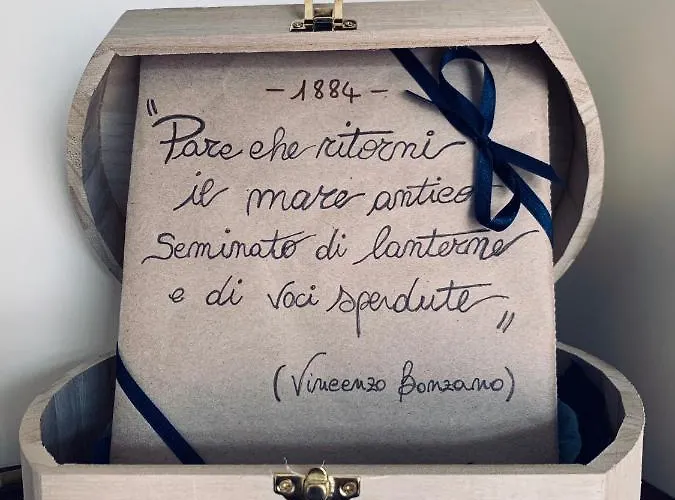 - 1884 -
"Pare che ritorni
il mare antico
Seminato di lanterne
e di voci sperdute"
(Vincenzo Bonzano)